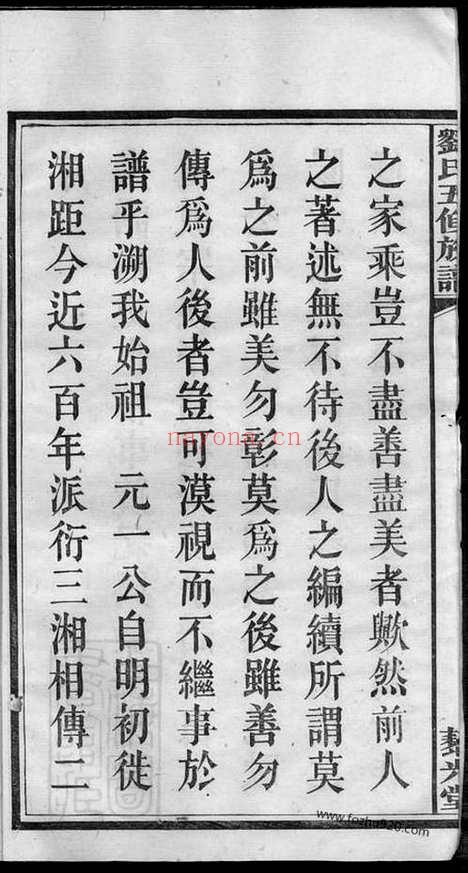 劉氏五修族譜
之家乘豈不盡善盡美者歟然前人
之著述無不待後人之編續所謂莫
為之前雖美勿彰莫為之後雖善勿
傳為人後者豈可漠視而不繼事於
譜乎溯我始祖 元一公自明初徙
湘距今近六百年派衍三湘相傳二
nayona.cn
www.fozhu920.com